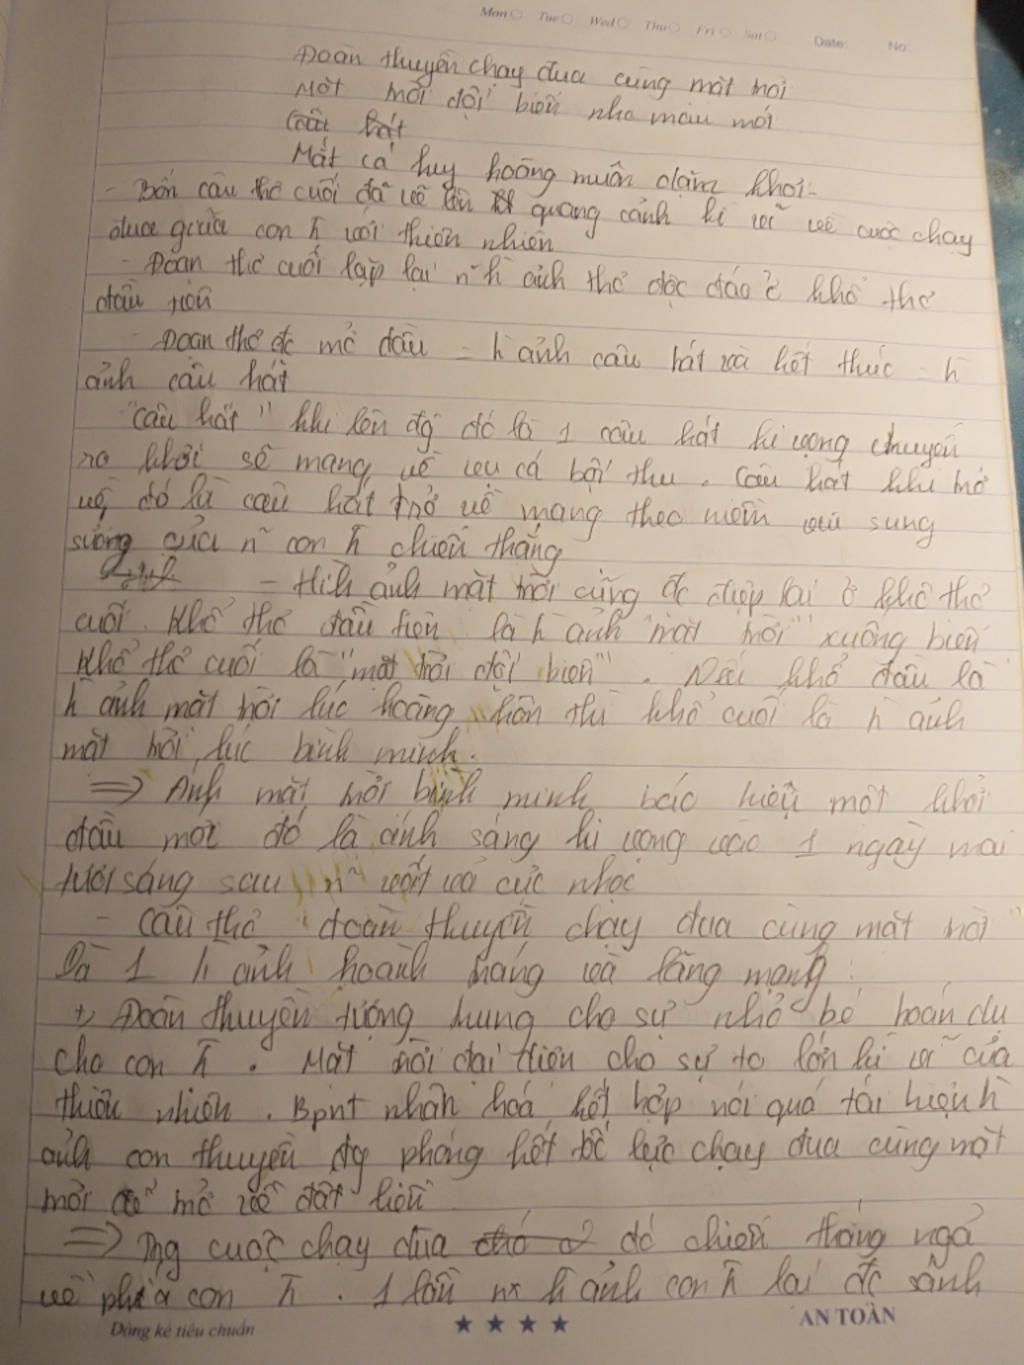 Mon Tue Wed Thu Fri Sat Date: No
Đoàn thuyền chạy đua cùng mặt trời
Mặt trời đội biển nhô màu mới
Câu hát
Mắt cá huy hoàng muôn dặm khơi
- Bốn câu thơ cuối đã vẽ lên quang cảnh kì vĩ về cuộc chạy
đua giữa con n̄ với thiên nhiên
- Đoạn thơ cuối lặp lại n~ h` ảnh thơ độc đáo ở khổ thơ
đầu tiên
- Đoạn thơ đc mở đầu = h` ảnh câu hát và kết thúc = h`
ảnh câu hát
"Câu hát" khi lên đg đó là 1 câu hát hi vọng chuyến
ra khơi sẽ mang về mẻ cá bội thu. Câu hát khi trở
về, đó là câu hát trở về mang theo niềm vui sung
sướng của n~ con n̄ chiến thắng
- Hình ảnh mặt trời cũng đc điệp lại ở khổ thơ
cuối. Khổ thơ đầu tiên là h` ảnh "mặt trời" xuống biển
Khổ thơ cuối là "mặt trời đội biển". Nếu khổ đầu là
h` ảnh mặt trời lúc hoàng hôn thì khổ cuối là h` ảnh
mặt trời lúc bình minh.
=> Ánh mặt trời bình minh báo hiệu một khởi
đầu mới đó là ánh sáng hi vọng vào 1 ngày mai
tươi sáng sau n~ vất vả cực nhọc
- Câu thơ "đoàn thuyền chạy đua cùng mặt trời"
là 1 h` ảnh hoành tráng và lãng mạng:
+, Đoàn thuyền tượng trưng cho sự nhỏ bé hoán dụ
cho con n̄. Mặt trời đại diện cho sự to lớn kì vĩ của
thiên nhiên. Bpnt nhân hoá kết hợp nói quá tái hiện h`
ảnh con thuyền đg phóng hết tốc lực chạy đua cùng mặt
trời để trở về đất liền
=> Trg cuộc chạy đua đó chiến thắng ngả
về phía con n̄. 1 lần nx h` ảnh con n̄ lại đc sánh
Dòng kẻ tiêu chuẩn ★ ★ ★ ★ AN TOÀN